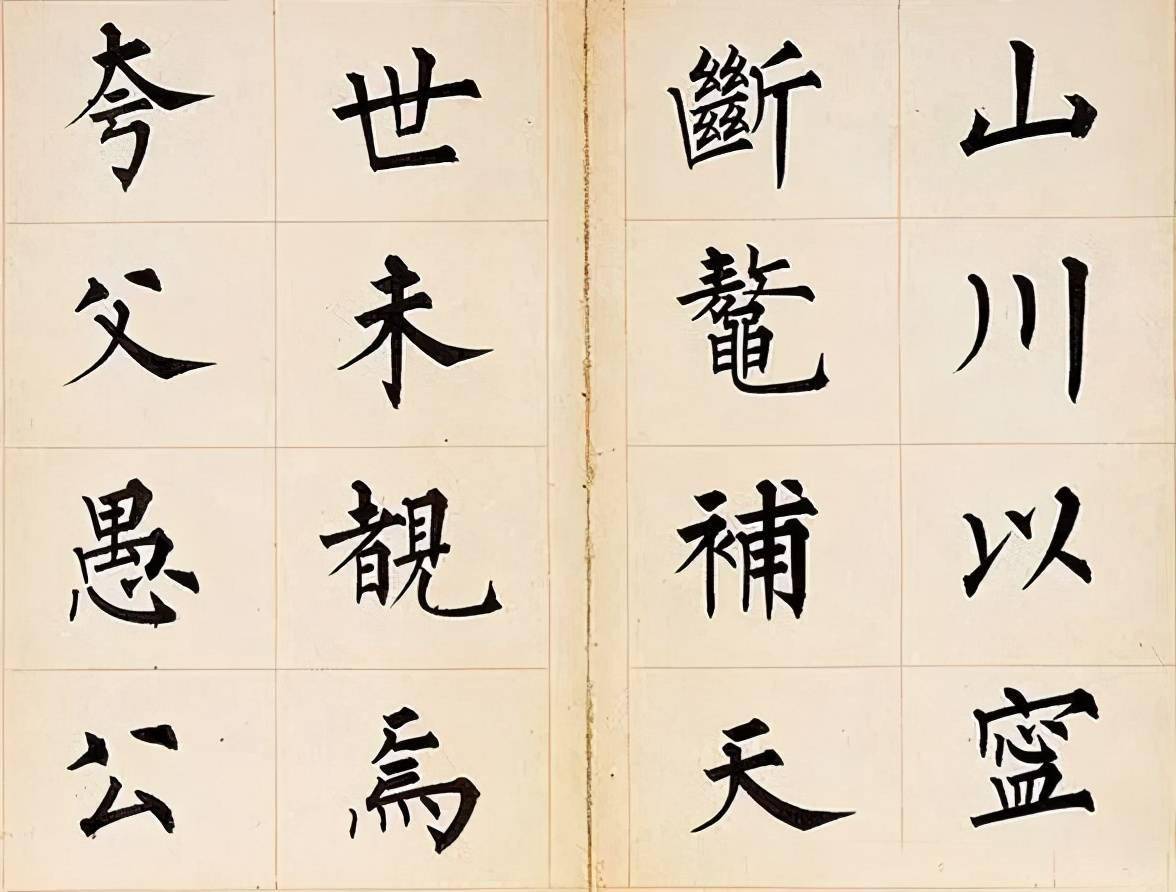 山川以寍
斷鼇補天
世未覩焉
夸父愚公